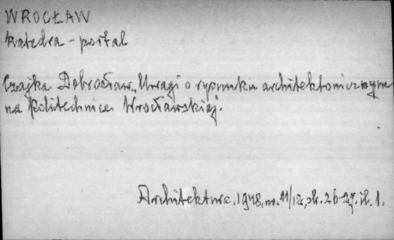 WROCŁAW
katedra - portal
Czajka Dobrosław „Uwagi o rysunku architektonicznym
na Politechnice Wrocławskiej".
Architektura, 1948, nr. 11/12, str. 26-27, il. 1.